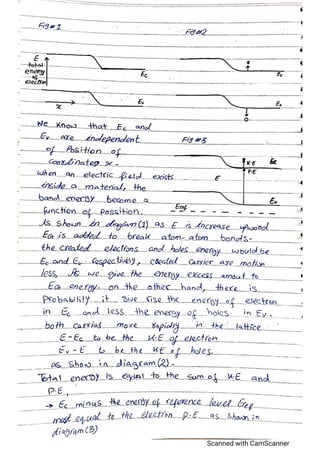 Fig #1
Fig #2
E
total
energy
of
electron
Ec
Ec
x
Ev
Ev
We know that Ec and
Ev are independent
of Position of
coordinates x.
Fig #3
when an electric field exists
inside a material, the
band energy become a
function of possition.
E
K.E
Ec
P.E
Ev
Eref
As shown in diagram (1) as E is increase upword
EG is added to break atom-atom bonds.
the created electrons and holes energy would be
Ec and Ev respectively, created carrier are motion
less, As we give the energy excess amout to
EG energy. on the other hand, there is
Probability it give rise the energy of electron
in Ec and less the energy of holes in Ev.
both carries move rapidly in the lattice
E-Ec to be the K.E of electron
Ev-E to be the KE of holes.
as show in diagram (2).
Total energy is equal to the sum of K.E and
P.E,
→ Ec minus the energy of reference level Eref
must equal to the electron P.E as shown in
diagram (3)
Scanned with CamScanner